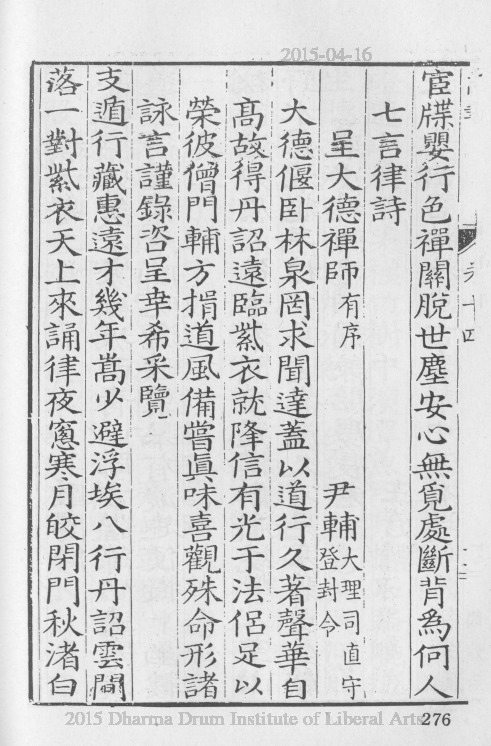 2015-04-16
宦牒嬰行色禪關脫世塵安心無覓處斷背為何人
七言律詩
呈大德禪師有序 尹輔大理司直守登封令
大德偃卧林泉罔求聞達蓋以道行久著聲華自
高故得丹詔遠臨紫衣就降信有光于法侶足以
榮彼僧門輔方揖道風備嘗眞味喜觀殊命形諸
詠言謹錄咨呈幸希采覽
支遁行藏惠遠才幾年嵩少避浮埃八行丹詔雲間
落一對紫衣天上來誦律夜窻寒月皎閉門秋渚白
2015 Dharma Drum Institute of Liberal Arts
276